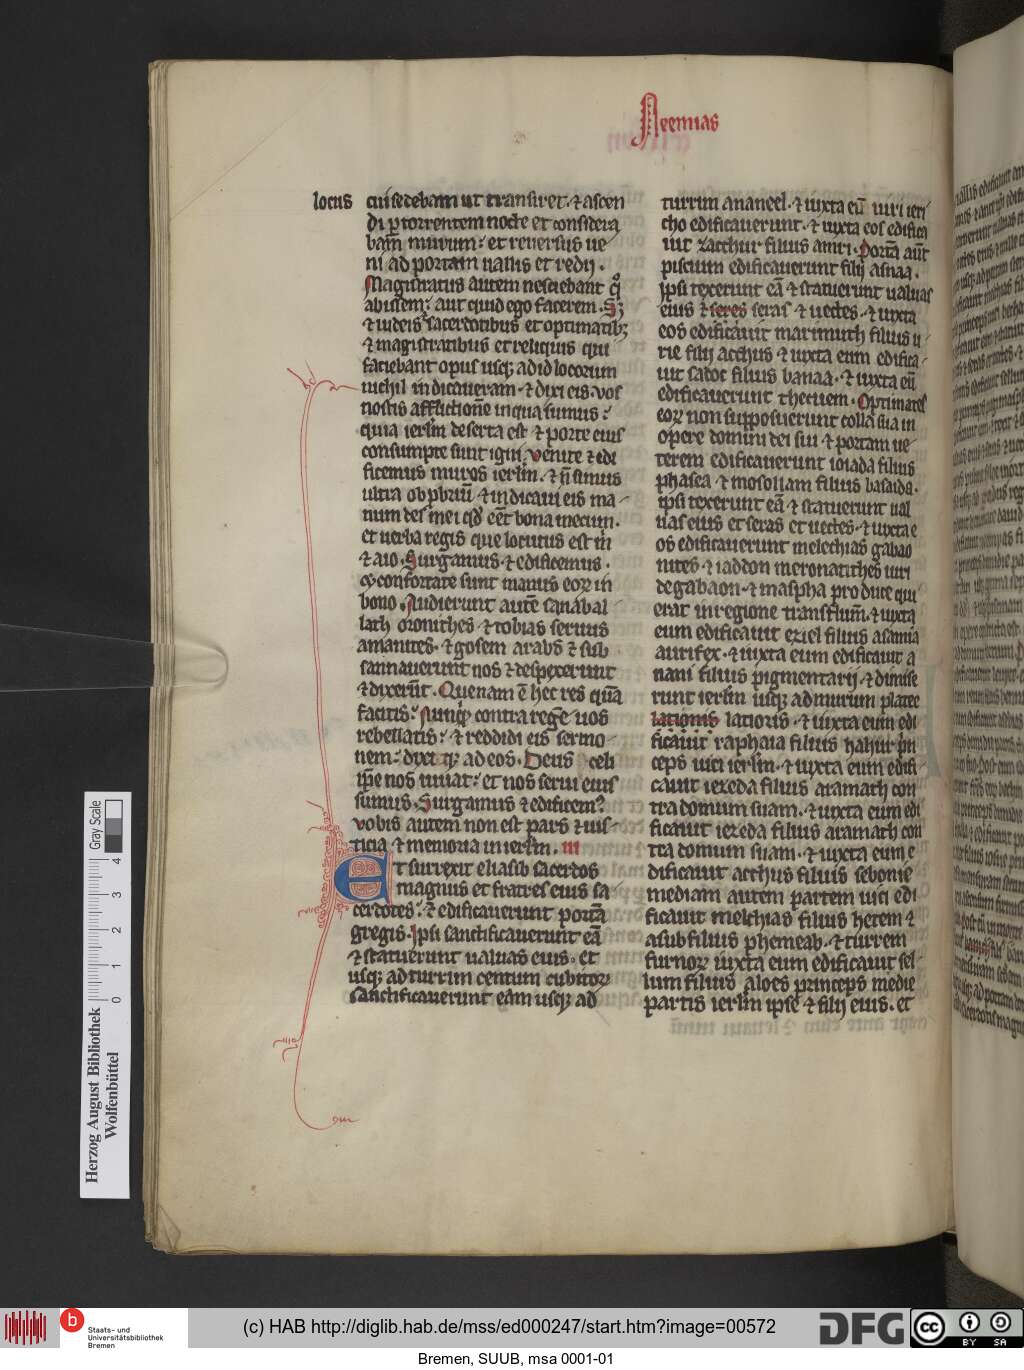 Neemias
locus cui sedebam ut transiret. ⁊ ascen
di p torrentem nocte et considera
bam murum: et reuersus ue
ni ad portam uallis et redij.
Magistratus autem nesciebant q
abissem: aut quid ego facerem. S;
⁊ iudeis sacerdotibus et optimatib;
⁊ magistratibus et reliquis qui
faciebant opus usq; ad id locorum
nichil indicaueram. ⁊ dixi eis. vos
nostis afflictionē in qua sumus:
quia ierlm deserta est ⁊ porte eius
consumpte sunt igni. venite ⁊ edi
ficemus muros ierlm. ⁊ n̄ simus
ultra obpbriū ⁊ indicaui eis ma
num dei mei qd eēt bona mecum.
et uerba regis que locutus est m̄
⁊ aio. Surgamus. ⁊ edificemus.
⁊ confortate sunt manus eoꝝ in
bono. Audierunt autē sanabal
lath oronithes. ⁊ tobias seruus
amanites. ⁊ gosem arabs ⁊ sub
sannauerunt nos ⁊ despexerunt
⁊ dixerūt. Quenam ē hec res quā
facitis: nunqd contra regē uos
rebellatis: ⁊ reddidi eis sermo
nem: dixi q; ad eos. Deus celi
ipē nos iuuat: et nos serui eius
sumus. Surgamus ⁊ edificem?
vobis autem non est pars ⁊ ius
ticia ⁊ memoria in ierlm. III
Et surrexit eliasib sacerdos
magnus et fratres eius sa
cerdotes. ⁊ edificauerunt portā
gregis. Ipsi sanctificauerunt eā
⁊ statuerunt ualuas eius. et
usq; ad turrim centum cubitoꝝ
sanctificauerunt eam usq; ad
turrim ananeel. ⁊ iuxta eū uiri ieri
cho edificauerunt. ⁊ iuxta eos edifica
uit zacchur filius amri. Portā aūt
piscium edificauerunt filij asnaa.
ipsi texerunt eā ⁊ statuerunt ualuas
eius ⁊ seres seras ⁊ uectes. ⁊ iuxta
eos edificauit marimuth filius u
rie filij acchus ⁊ iuxta eum edifica
uit sadoc filius banaa. ⁊ iuxta eū
edificauerunt thecuem. Optimates
eoꝝ non supposuerunt colla sua in
opere domini dei sui ⁊ portam ue
terem edificauerunt ioiada filius
phasea ⁊ mosollam filius basaida.
ipsi texerunt eā ⁊ statuerunt ual
uas eius et seras et uectes. ⁊ iuxta e
os edificauerunt melechias gabao
nites. ⁊ iaddon meronathites uiri
de gabaon. ⁊ maspha pro duce qui
erat in regione transflum. ⁊ iuxta
eum edificauit eziel filius asamia
aurifex. ⁊ iuxta eum edificauit a
nani filius pigmentarij. ⁊ dimise
runt ierlm usq; ad murum platee
lationis latioris. ⁊ iuxta eum edi
ficauit raphaia filius hahur prin
ceps uici ierlm. ⁊ iuxta eum edifi
cauit iezeda filius aramath con
tra domum suam. ⁊ iuxta eum edi
ficauit iezeda filius aramath con
tra domum suam. ⁊ iuxta eum e
dificauit acchus filius sebonie
mediam autem partem uici edi
ficauit melchias filius herem ⁊
asub filius phemeab. ⁊ turrem
furnoꝝ iuxta eum edificauit sel
lum filius aloes princeps medie
partis ierlm ipse ⁊ filij eius. et
Herzog August Bibliothek
Wolfenbüttel
0 1 2 3 4
Gray Scale
HAB
b
Staats- und
Universitätsbibliothek
Bremen
(c) HAB http://diglib.hab.de/mss/ed000247/start.htm?image=00572
DFG
cc BY SA
Bremen, SUUB, msa 0001-01